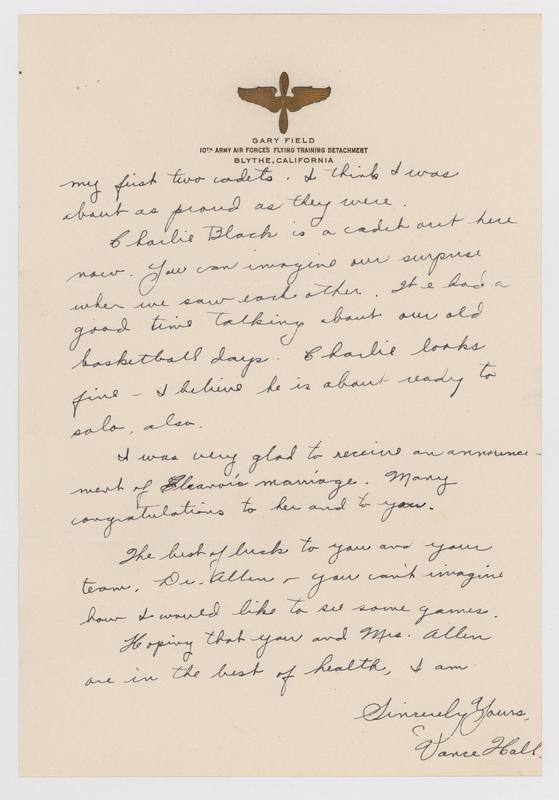 GARY FIELD
10TH ARMY AIR FORCES FLYING TRAINING DETACHMENT
BLYTHE, CALIFORNIA
my first two cadets. I think I was
about as proud as they were.
Charlie Black is a cadet out here
now. You can imagine our surprise
when we saw each other. We had a
good time talking about our old
basketball days. Charlie looks
fine – I believe he is about ready to
solo, also.
I was very glad to receive an announce-
ment of Eleanor's marriage. Many
congratulations to her and to you.
The best of luck to you and your
team, Dr. Allen – you can't imagine
how I would like to see some games.
Hoping that you and Mrs. Allen
are in the best of health, I am
Sincerely Yours,
Vance Hall.